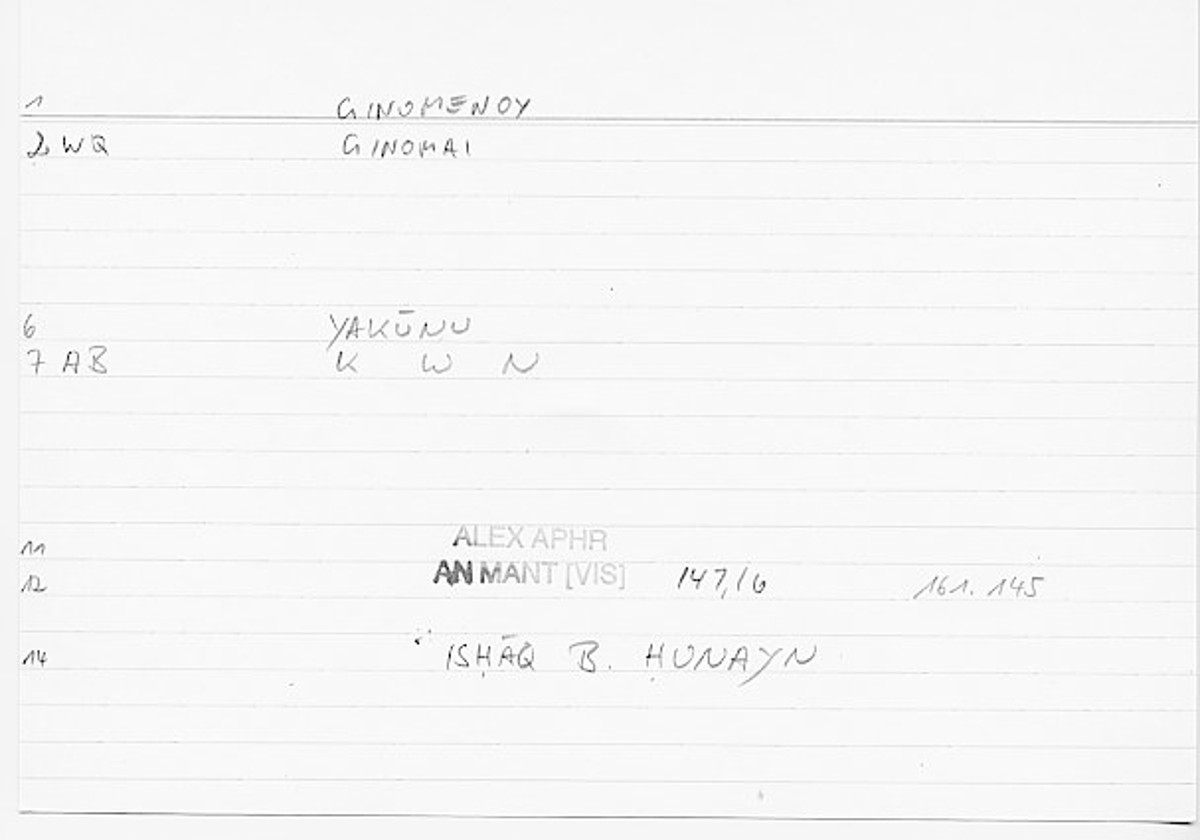 1 GINOMENOY
2 WQ GINOMAI
6 YAKŪNU
7 AB K W N
11 ALEX APHR
12 AN MANT [VIS] 147,16 161.145
14 ISḤĀQ B. ḤUNAYN